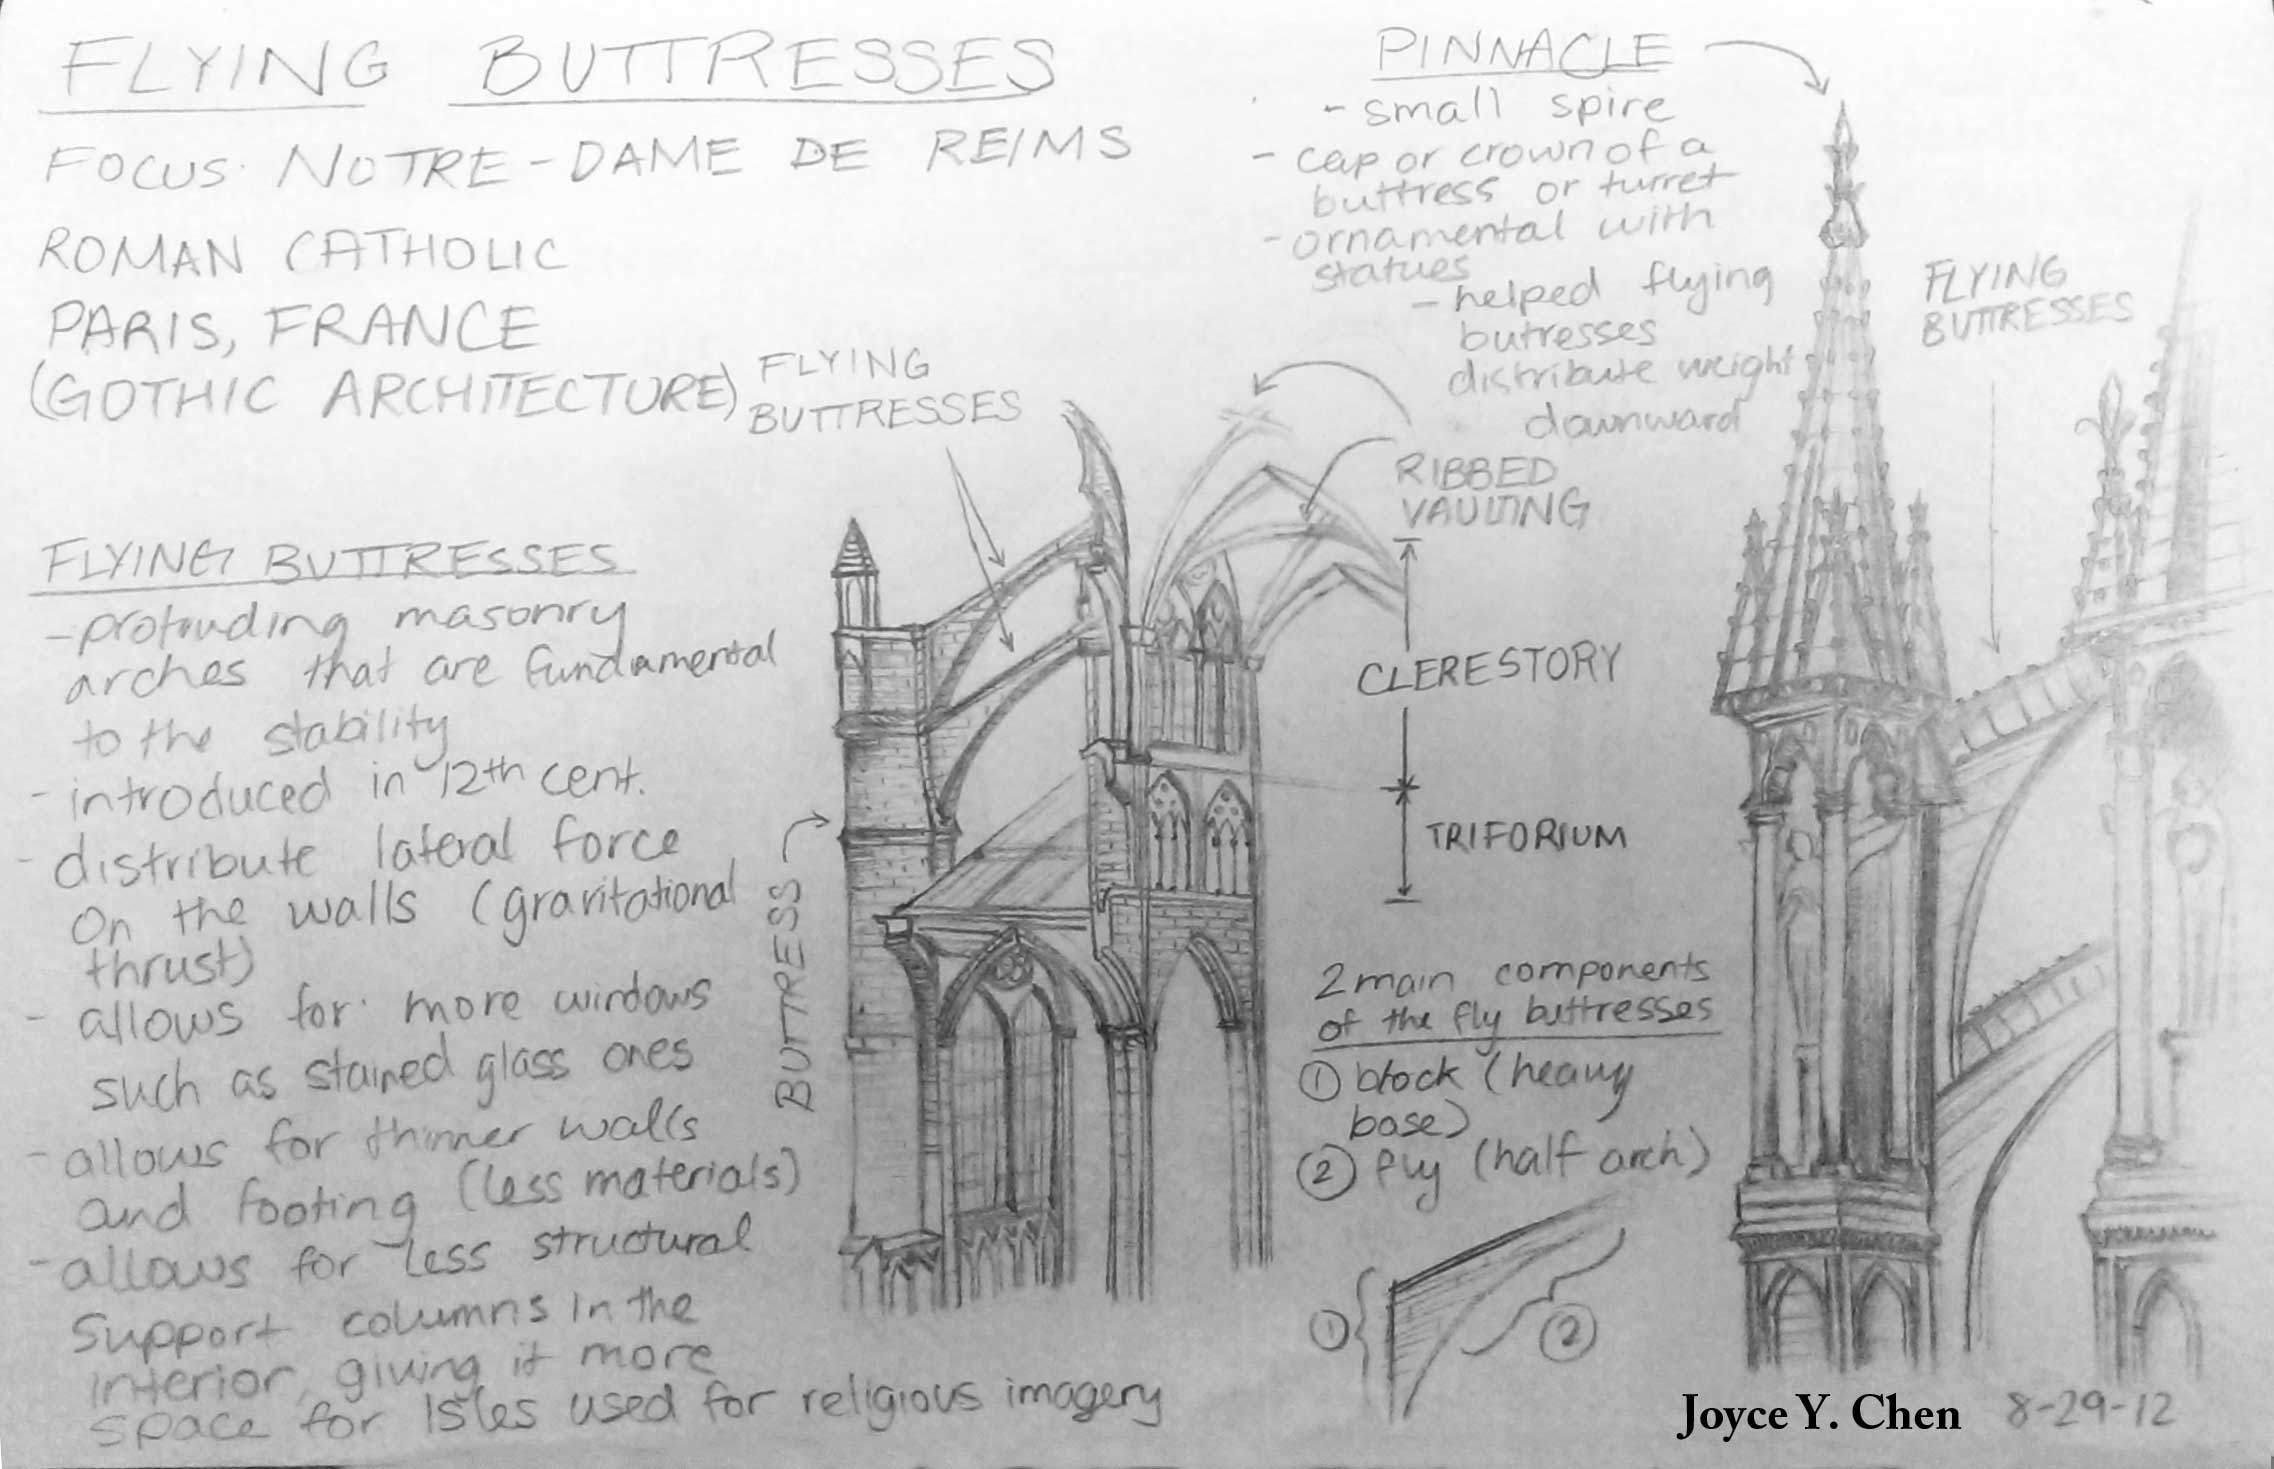 FLYING BUTTRESSES
FOCUS: NOTRE-DAME DE REIMS
ROMAN CATHOLIC
PARIS, FRANCE
(GOTHIC ARCHITECTURE)
FLYING BUTTRESSES
-protruding masonry
arches that are fundamental
to the stability
- introduced in 12th cent.
- distribute lateral force
on the walls (gravitational
thrust)
- allows for more windows
such as stained glass ones
- allows for thinner walls
and footing (less materials)
- allows for less structural
support columns in the
interior, giving it more
space for isles used for religious imagery
FLYING
BUTTRESSES
BUTTRESS
PINNACLE
- small spire
- cap or crown of a
buttress or turret
- ornamental with
statues
- helped flying
buttresses
distribute weight
downward
RIBBED
VAULTING
CLERESTORY
TRIFORIUM
2 main components
of the fly buttresses
① block (heavy
base)
② fly (half arch)
①
②
FLYING
BUTTRESSES
Joyce Y. Chen 8-29-12